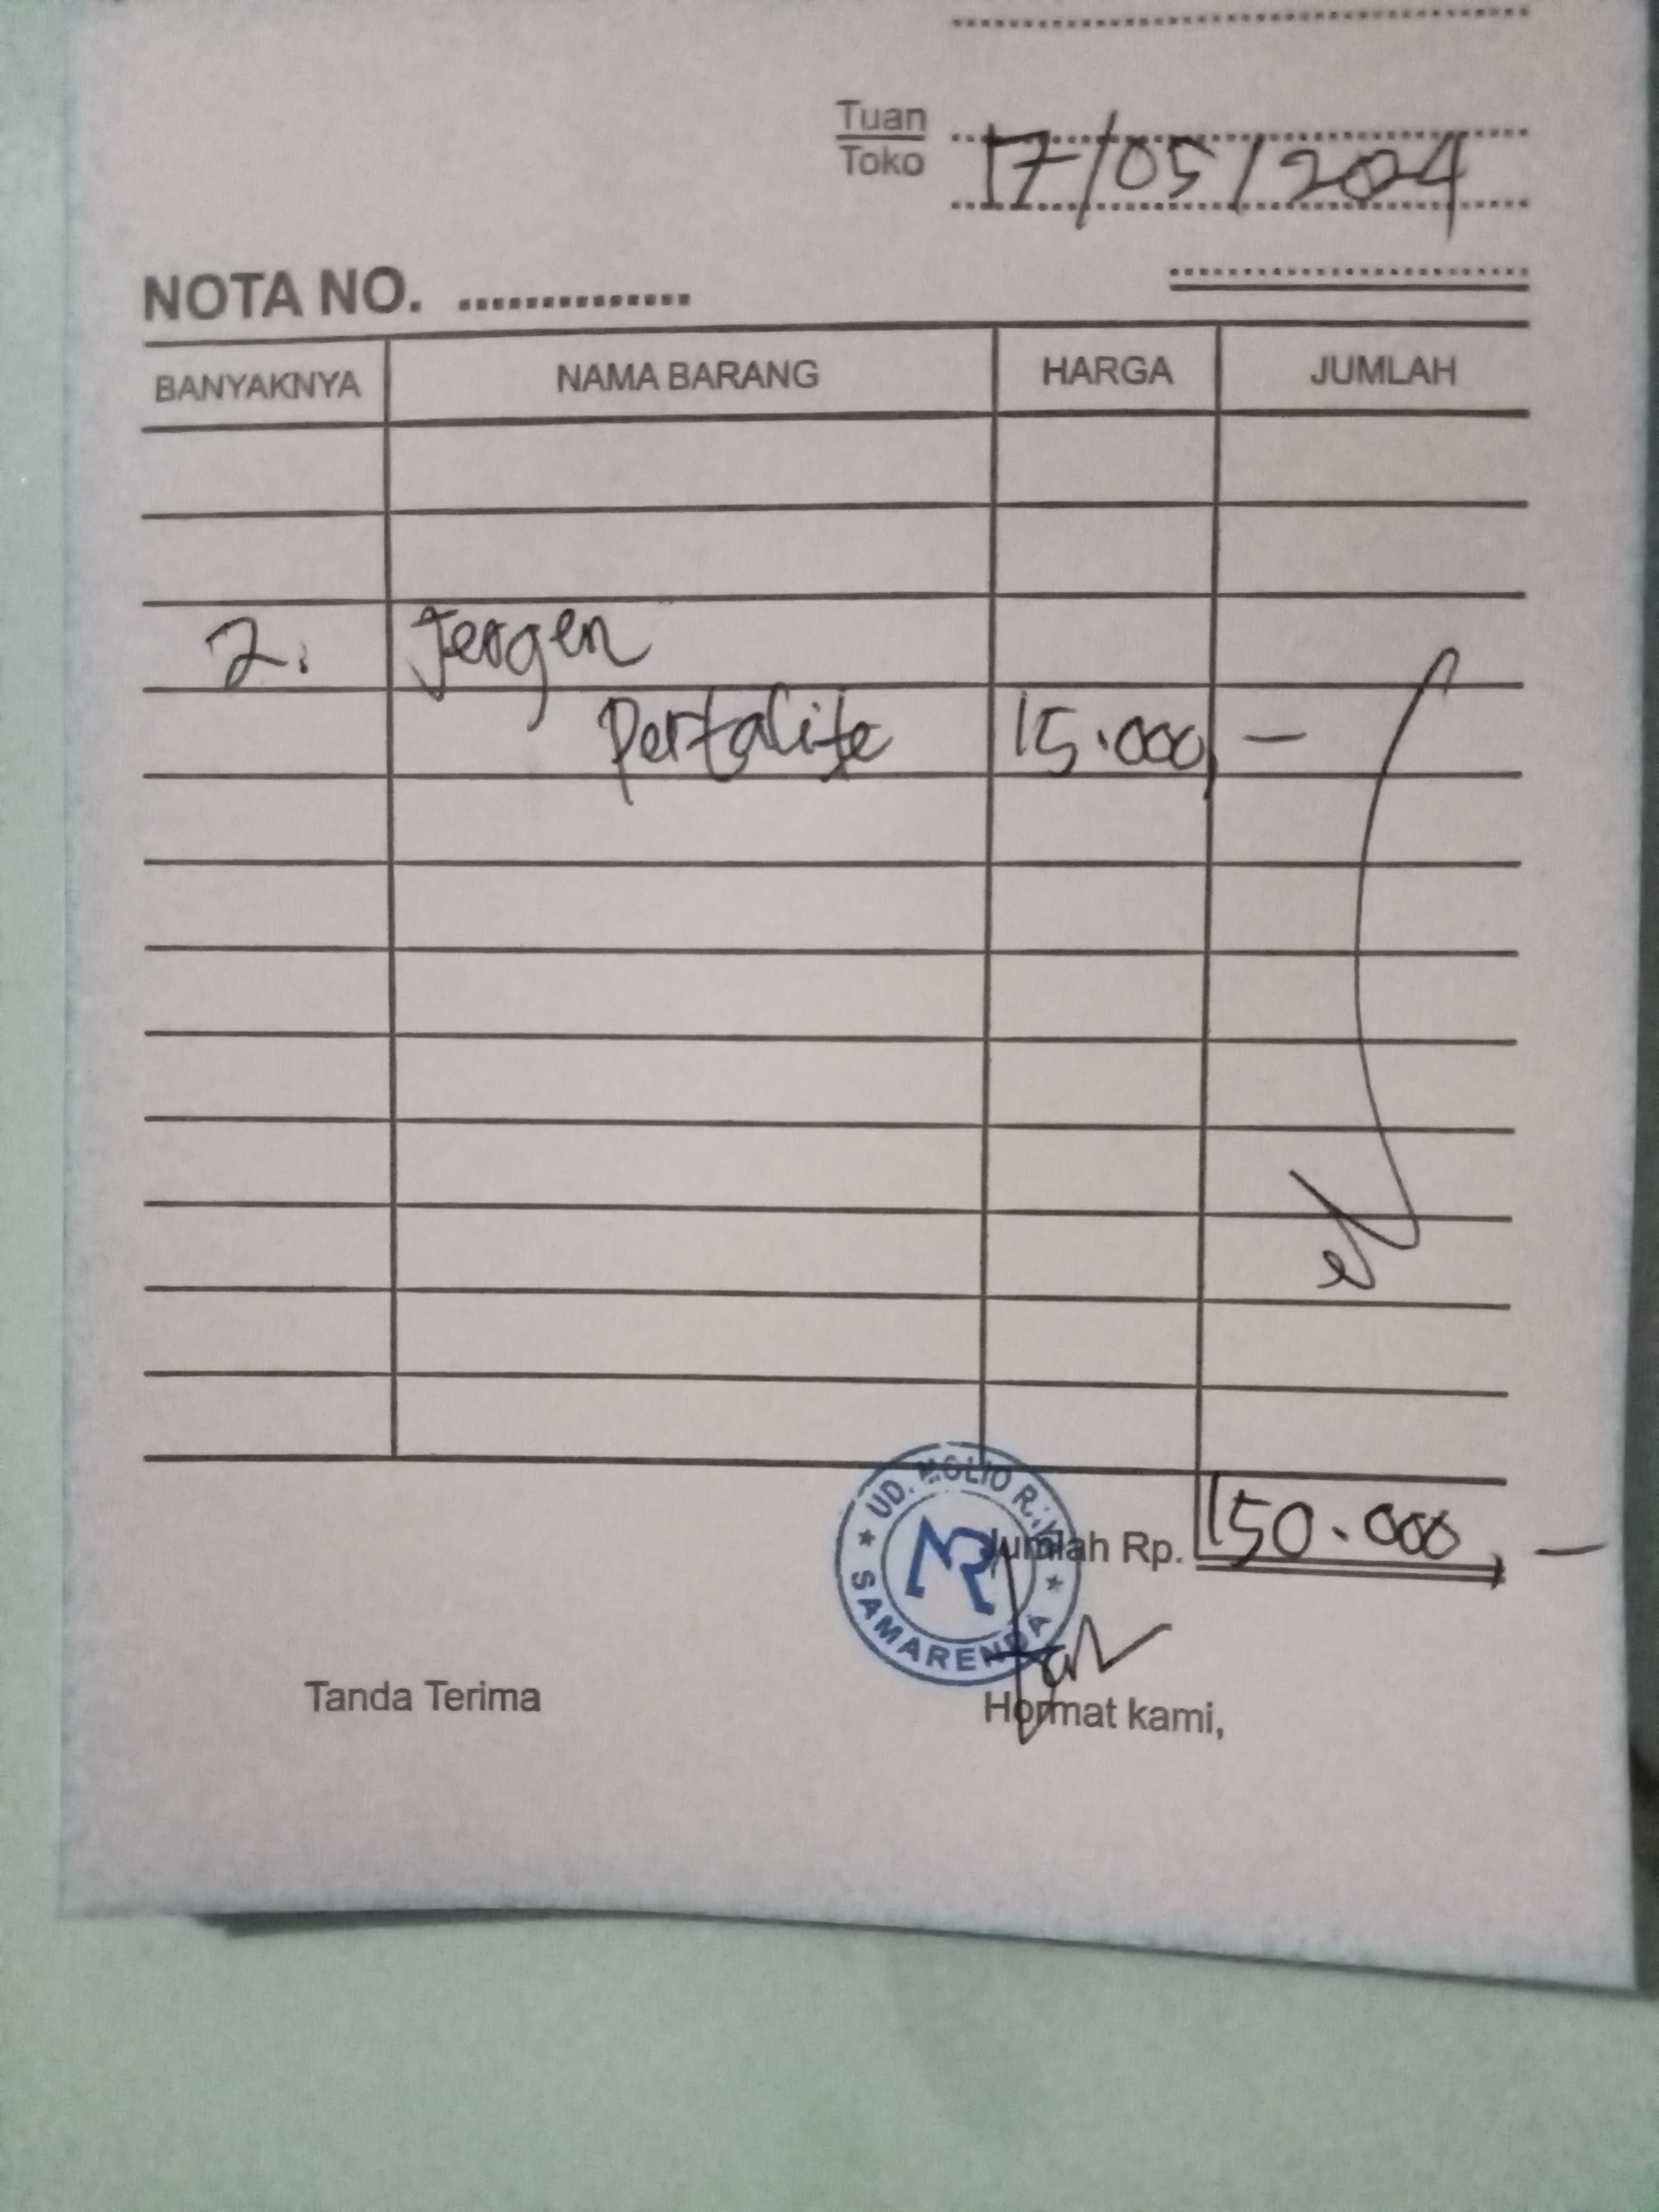 Tuan
Toko
17/05/2024
NOTA NO. ..............
BANYAKNYA NAMA BARANG HARGA JUMLAH
2. Jergen
Pertalite 15.000,-
Jumlah Rp. 150.000,-
UD. MOLIO
MR
SAMARENDA
Tanda Terima
Hormat kami,